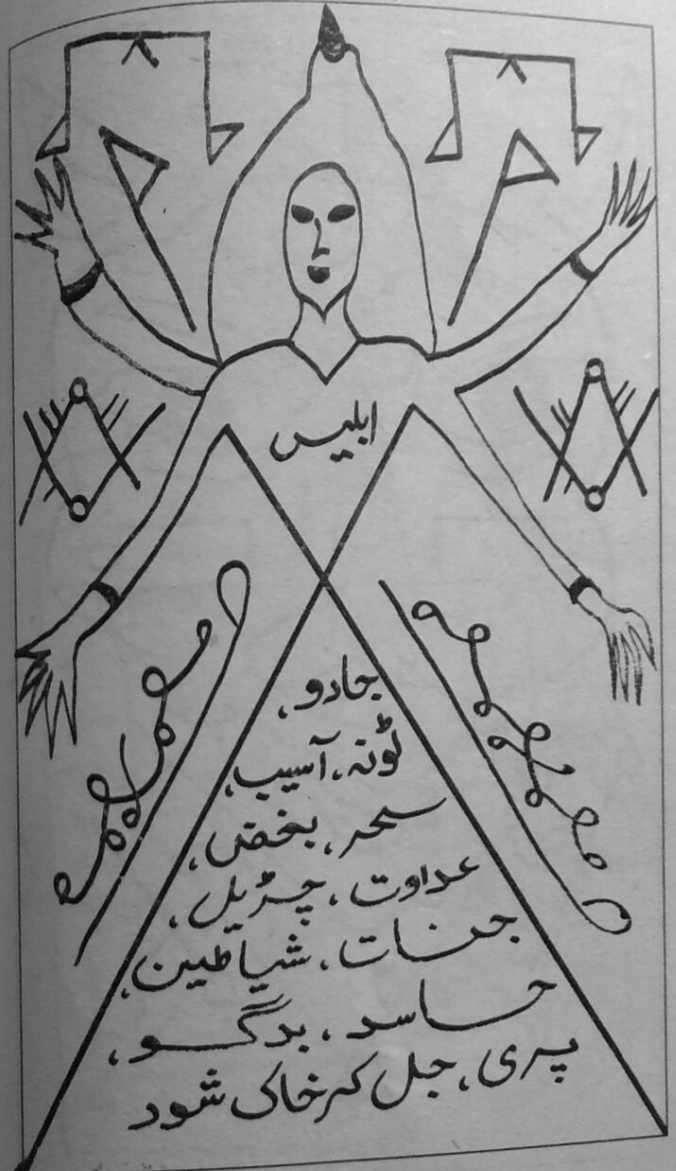 ابلیس
جادو،
ٹونہ، آسیب،
سحر، بغض،
عداوت، چڑیل،
جنات، شیاطین،
حاسد، بدگو،
پری، جل کر خاک شود